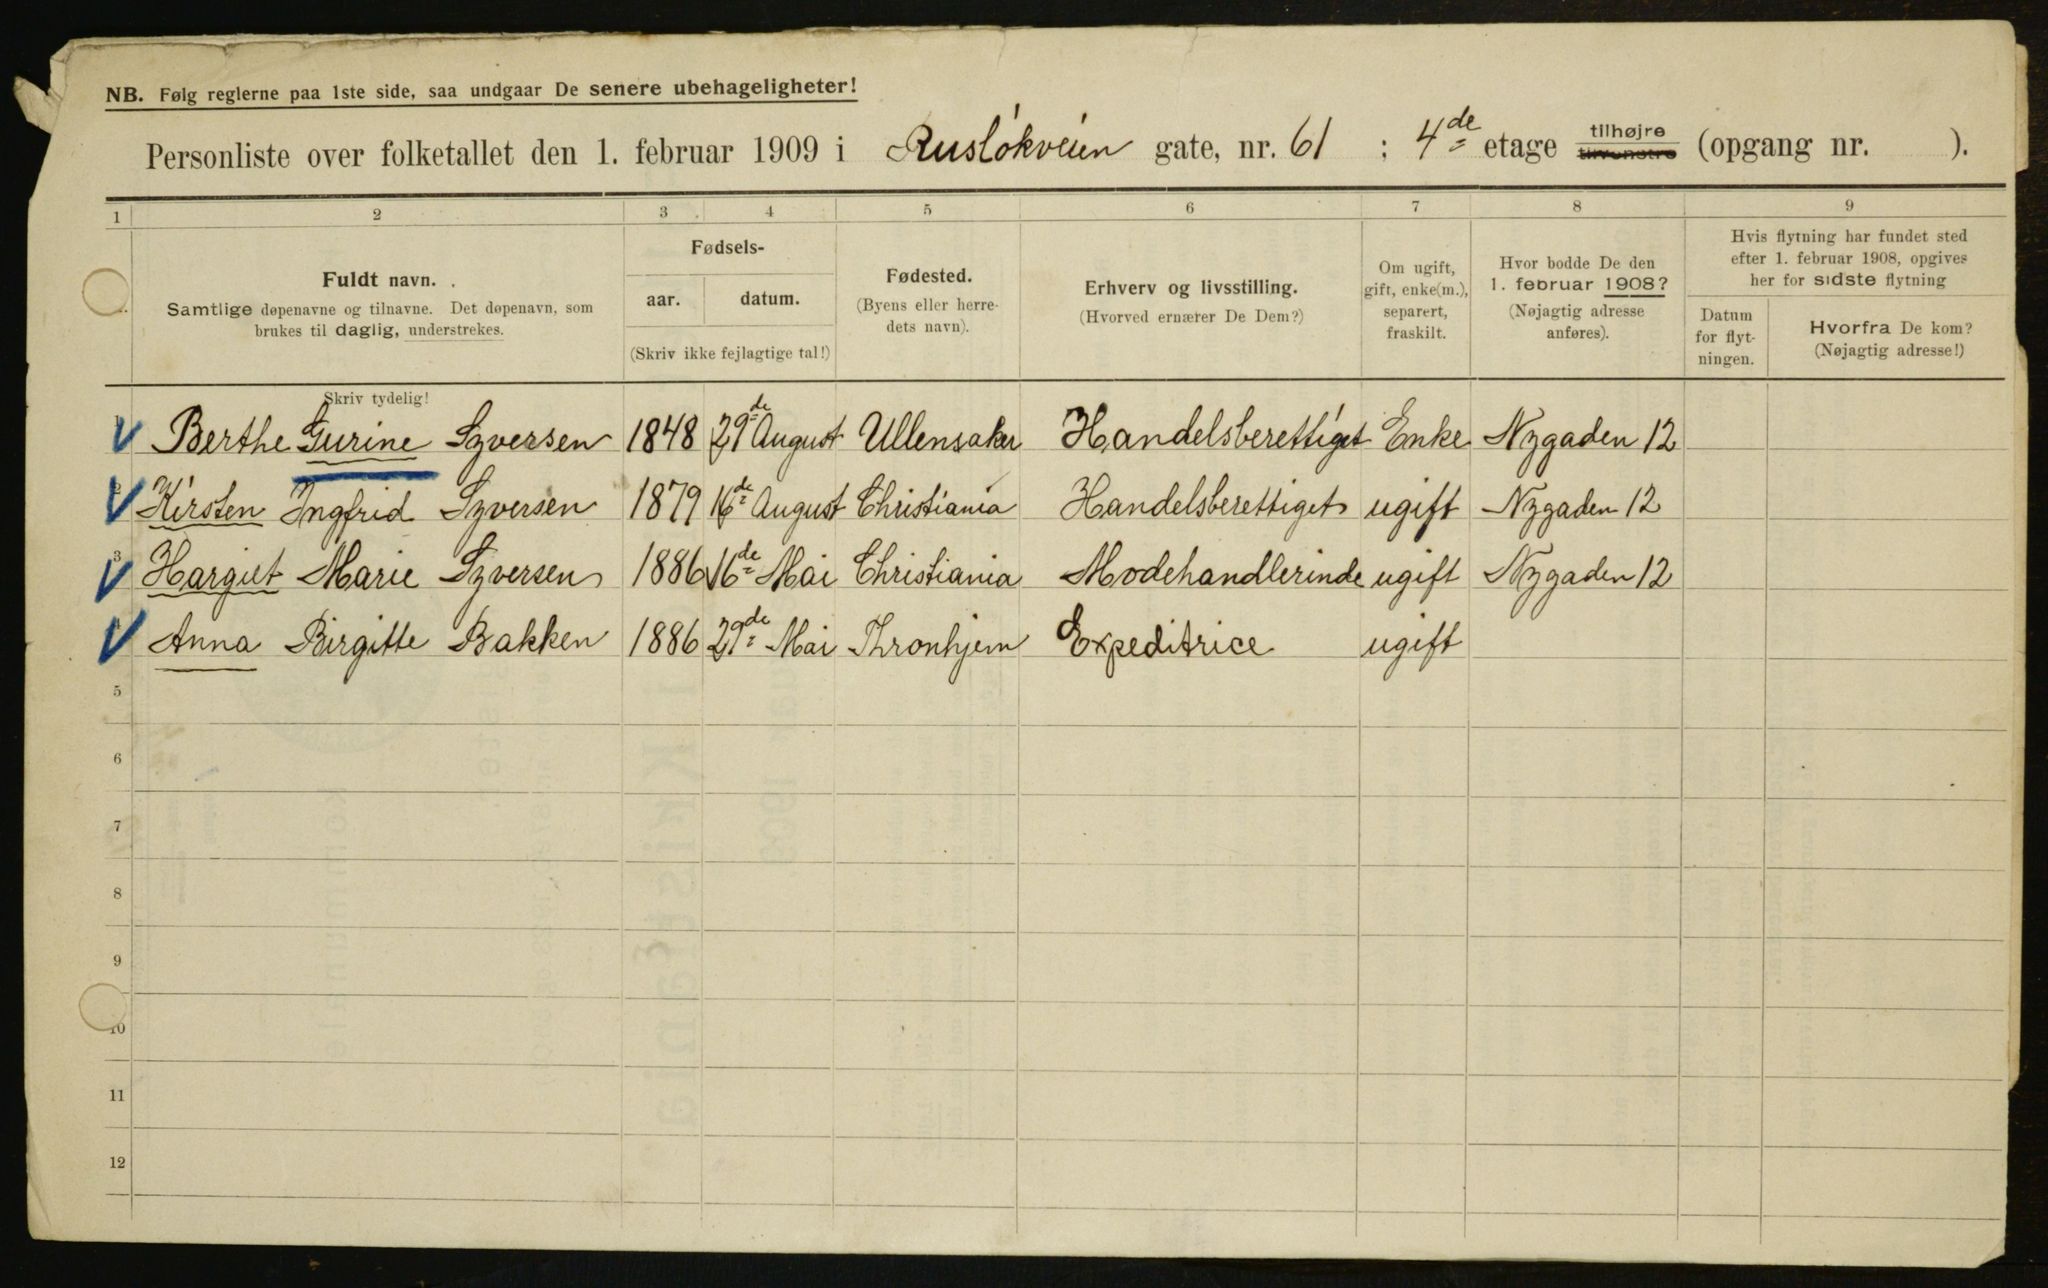 NB. Følg reglerne paa 1ste side, saa undgaar De senere ubehageligheter!
Personliste over folketallet den 1. februar 1909 i Rusløkveien gate, nr. 61 ; 4de etage tilhøjre tilvenstre (opgang nr. ).
1 2 3 4 5 6 7 8 9
Fuldt navn.
Samtlige døpenavne og tilnavne. Det døpenavn, som
brukes til daglig, understrekes.
Fødsels-
aar. datum.
(Skriv ikke fejlagtige tal!)
Fødested.
(Byens eller herre-
dets navn).
Erhverv og livsstilling.
(Hvorved ernærer De Dem?)
Om ugift,
gift, enke(m.),
separert,
fraskilt.
Hvor bodde De den
1. februar 1908?
(Nøjagtig adresse
anføres).
Hvis flytning har fundet sted
efter 1. februar 1908, opgives
her for sidste flytning
Datum
for flyt-
ningen.
Hvorfra De kom?
(Nøjagtig adresse!)
Skriv tydelig!
1 Berthe Gurine Syversen 1848 29de August Ullensaker Handelsberettiget Enke Nygaden 12
2 Kirsten Ingfrid Syversen 1879 16de August Christiania Handelsberettiget ugift Nygaden 12
3 Margit Marie Syversen 1886 16de Mai Christiania Modehandlerinde ugift Nygaden 12
Anna Birgitte Bakken 1886 29de Mai Thronhjem Expeditrice ugift
5
6
7
8
9
10
11
12